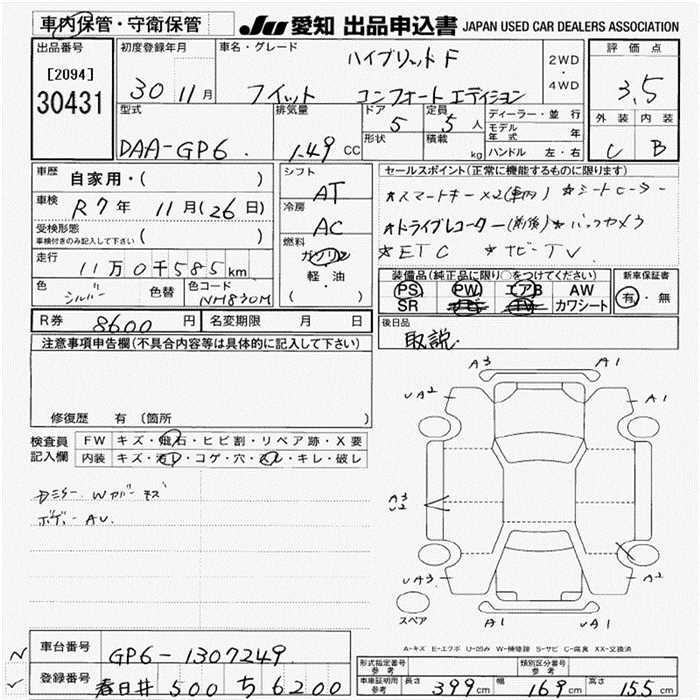 車内保管・守衛保管
JU 愛知 出品申込書 JAPAN USED CAR DEALERS ASSOCIATION
出品番号
[2094]
30431
初度登録年月
30 11月
車名・グレード
ハイブリット F
フィット コンフォートエディション
2WD
・
4WD
評価点
3.5
外装 内装
C B
型式
DAA-GP6
排気量
1.49 CC
ドア 5
形状
定員 5 人
積載 kg
ディーラー・並行
モデル年式 年
ハンドル 左・右
車歴 自家用・( )
車検 R7年 11月(26日)
受検形態
車検付きのみ記入して下さい ( )
走行 11万0千585km
色 シルバー 色替 色コード NH830M
シフト
AT
冷房
AC
燃料
ガソリン
軽・油
( )
セールスポイント(正常に機能するものに限ります)
*スマートキー×2(車内) *シートヒーター
*ドライブレコーター(前後)*バックカメラ
*ETC *ナビ-TV
装備品(純正品に限り○をつけてください)
PS PW エアB AW
SR カワシート
新車保証書
有・無
R券 8600円 名変期限 月 日
後日品
取説
注意事項申告欄(不具合内容等は具体的に記入して下さい)
修復歴 有 (箇所 )
検査員記入欄
FW キズ・飛石・ヒビ割・リペア跡・X要
内装 キズ・汚レ・コゲ・穴・スレ・キレ・破レ
Wカバー キズ
ボデー AU
A3 A1
UA2 A1
A3
U2
UA3 A2
A1 UA1
スペア
A-キズ E-エクボ U-凹み W-補修跡 S-サビ C-腐食 XX-交換済
車台番号 GP6-1307249
登録番号 春日井 500 ち 6200
形式指定番号 参考
類別区分番号 参考
車庫証明用参考 長さ 399cm 幅 169cm 高さ 155cm